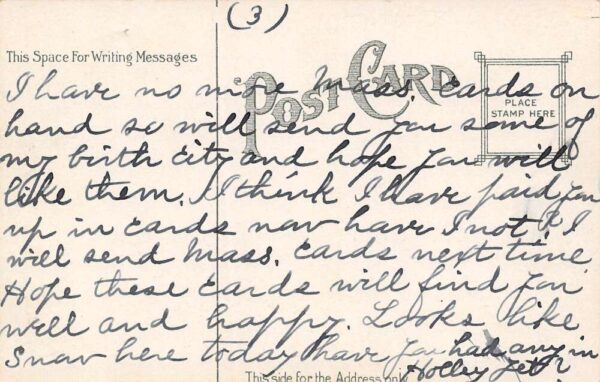 (3)
This Space For Writing Messages
POST CARD
PLACE
STAMP HERE
I have no more Mass. Cards on
hand so will send you some of
my birth city and hope you will
like them. I think I have paid you
up in cards now have I not? I
will send Mass. Cards next time
Hope these cards will find you
well and happy. Looks like
snow here today have you had any in
Holley yet?
This side for the Address only